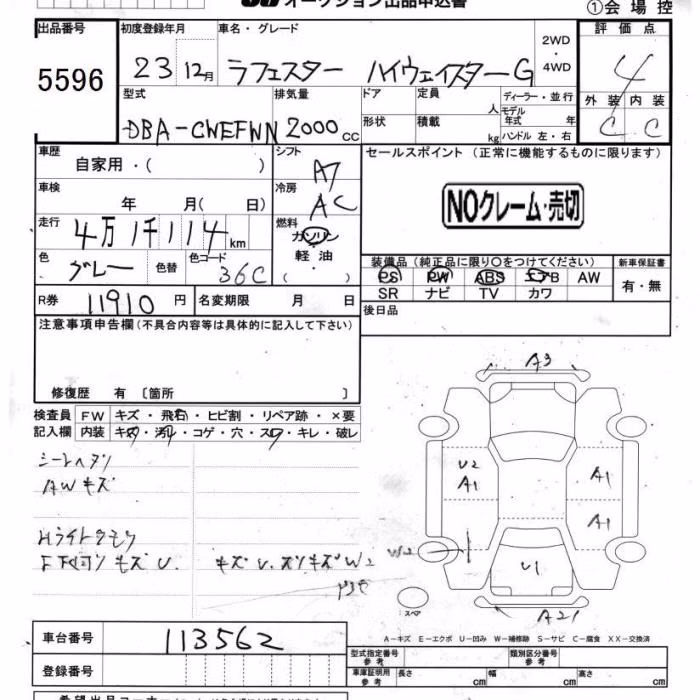 オークション出品申込書
①会場控
出品番号 初度登録年月 車名・グレード 評価点
5596 23 12月 ラフェスター ハイウェイスターG 2WD・4WD 4
型式 排気量 ドア 定員 人 ディーラー・並行 外装 内装
DBA-CWEFWN 2000cc 形状 積載 kg モデル年式 年 C C
ハンドル 左・右
車歴 自家用・( ) シフト A7 セールスポイント (正常に機能するものに限ります)
車検 年 月( 日) 冷房 AC NOクレーム・売切
走行 4万1千114km 燃料 ガソリン
軽油
( )
色 グレー 色替 色コード 36C 装備品 (純正品に限り〇をつけてください) 新車保証書
PS PW ABS エアB AW 有・無
SR ナビ TV カワ
R券 11910円 名変期限 月 日 後日品
注意事項申告欄 (不具合内容等は具体的に記入して下さい)
修復歴 有 〔箇所 〕
検査員 FW キズ・飛石・ヒビ割・リペア跡・×要
記入欄 内装 キズ・汚レ・コゲ・穴・スレ・キレ・破レ
シートヘタリ
AWキズ
Hライトクモリ
F下回リキズU. キズU.スリキズW2
A3
U2
A1
A1
A1
W2
U1
A21
スペ
A-キズ E-エクボ U-凹み W-補修跡 S-サビ C-腐食 XX-交換済
車台番号 113562
登録番号
型式指定番号 参考 類別区分番号 参考
車庫証明用 参考 長さ cm 幅 cm 高さ cm
希望出品コーナー